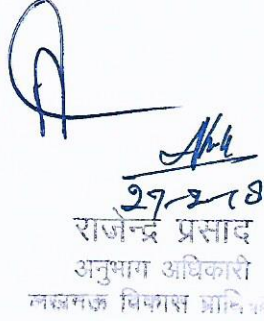 27-2-18
राजेन्द्र प्रसाद
अनुभाग अधिकारी
लखनऊ विकास प्राधि